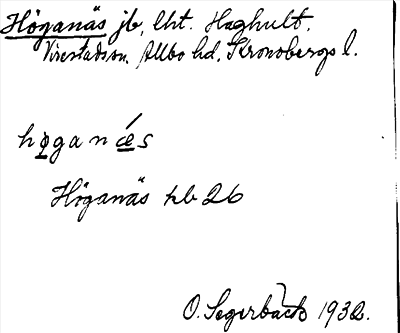 Höganäs jb, lht. Haghult,
Virestads sn, Allbo hd, Kronobergs l.
høganǽs
Höganäs hb 26
O. Segerbäck 1932.